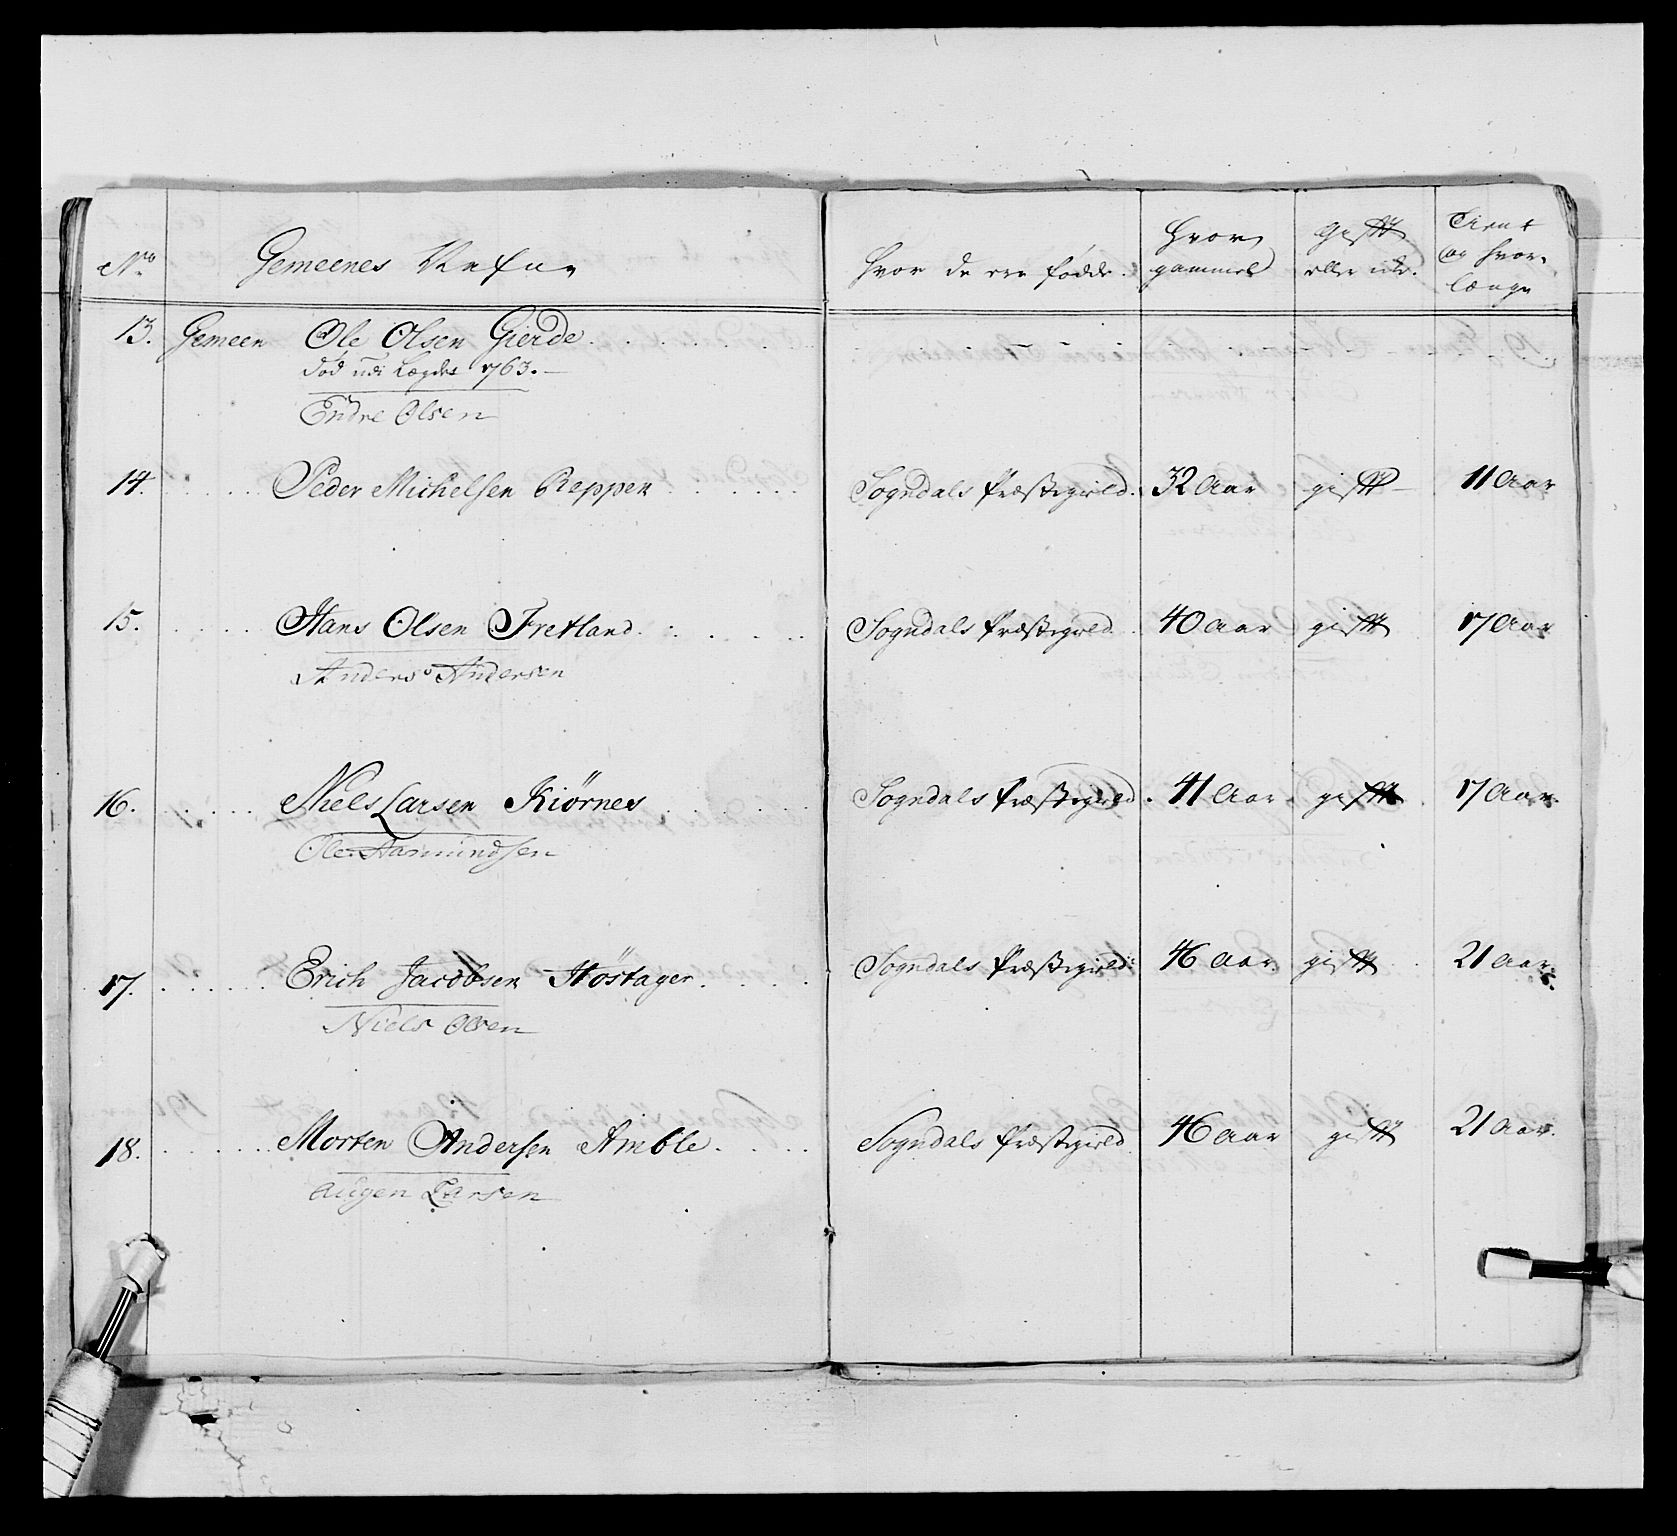 No Gemeenes Nafne Hvor de ere födde. Hvor gammel Gifft eller ide. Tient og hvor længe
13. Gemeen Ole Olsen Gierde
död udi Lægdet 1763.
Endre Olsen
14. Peder Michelsen Reppen Sogndals Præstegield. 32 Aar gifft 11 Aar
15. Hans Olsen Fretland Sogndals Præstegield 40 Aar gifft 17 Aar
Anders Andersen
16. Niels Larsen Kiörnes Sogndals Præstegield. 41 Aar gifft 17 Aar.
Ole Aamundsen
17. Erich Jacobsen Höstager. Sogndals Præstegield 46 Aar gifft 21 Aar.
Niels Olsen
18. Morten Andersen Amble. Sogndals Præstegield 46 Aar gifft 21 Aar.
Augen Larsen